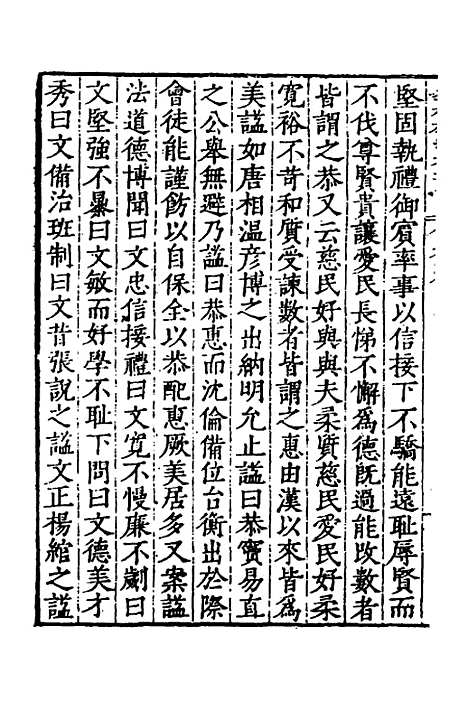 堅固執禮御賔率事以信接下不驕能遠耻辱賢而
不伐尊賢貴讓愛民長悌不懈爲德旣過能改數者
皆謂之恭又云慈民好與與夫柔質慈民愛民好柔
寛裕不苛和質受諫數者皆謂之惠由漢以來皆爲
美諡如唐相温彦博之出納明允止諡曰恭竇易直
之公舉無避乃諡曰恭惠而沈倫備位台衡出於際
會徒能謹飭以自保全以恭配惠厥美居多又案諡
法道德博聞曰文忠信接禮曰文寛不慢廉不劌曰
文堅強不暴曰文敏而好學不耻下問曰文德美才
秀曰文備治班制曰文昔張說之諡文正楊綰之諡